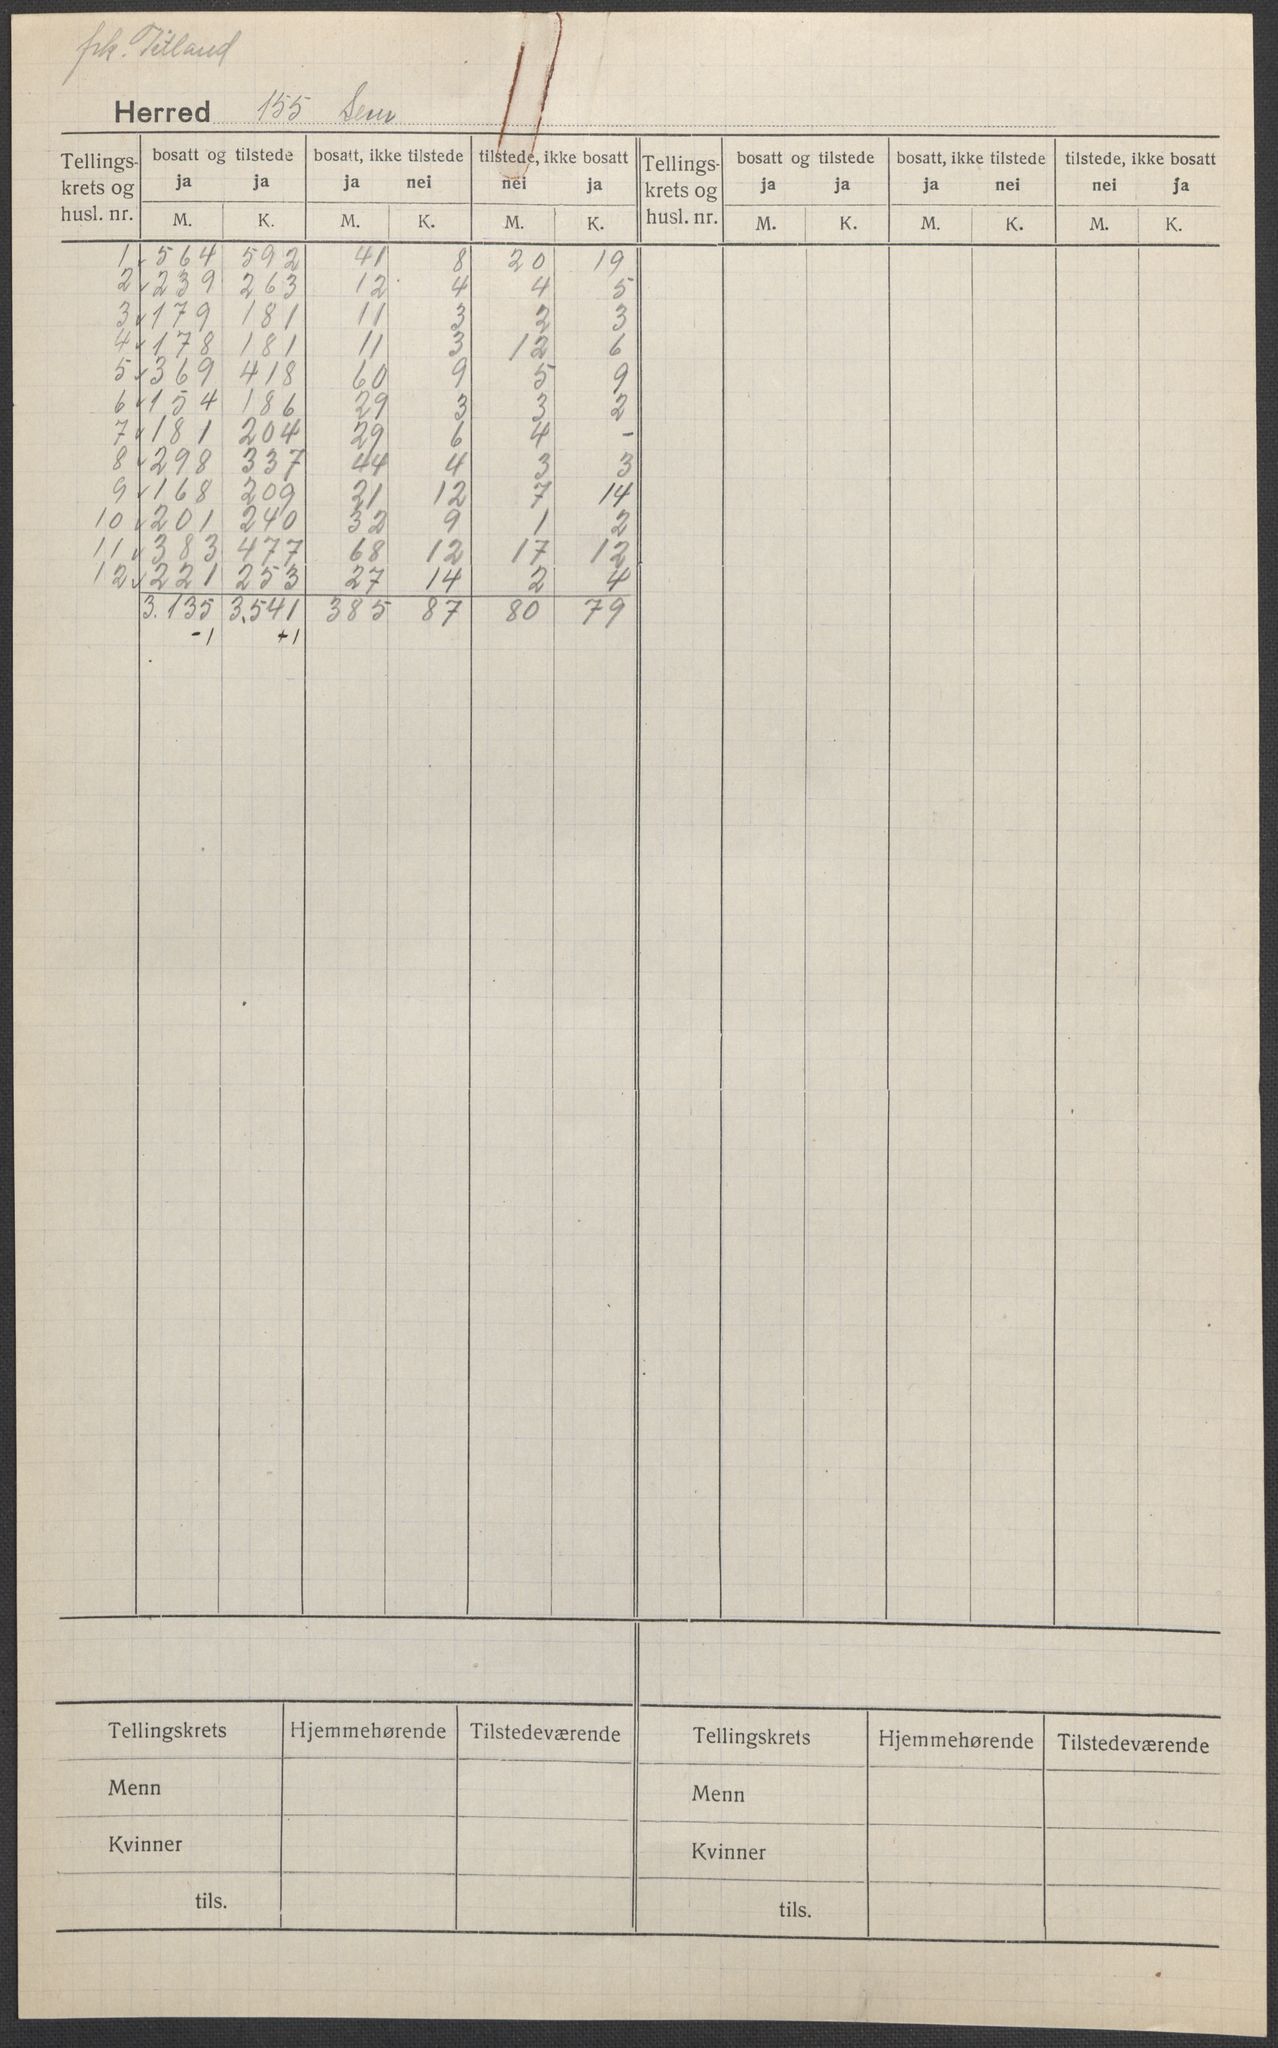 frk. Titland
Herred 155 Sem
Tellings-krets og husl. nr. bosatt og tilstede bosatt, ikke tilstede tilstede, ikke bosatt Tellings-krets og husl. nr. bosatt og tilstede bosatt, ikke tilstede tilstede, ikke bosatt
ja ja ja nei nei ja ja ja ja nei nei ja
M. K. M. K. M. K. M. K. M. K. M. K.
1 564 592 41 8 20 19
2 239 263 12 4 4 5
3 179 181 11 3 2 3
4 178 181 11 3 12 6
5 369 418 60 9 5 9
6 154 186 29 3 3 2
7 181 204 29 6 4 -
8 298 337 44 4 3 3
9 168 209 21 12 7 14
10 201 240 32 9 1 2
11 383 477 68 12 17 12
12 221 253 27 14 2 4
3.135 3.541 385 87 80 79
-1 +1
Tellingskrets Hjemmehørende Tilstedeværende Tellingskrets Hjemmehørende Tilstedeværende
Menn Menn
Kvinner Kvinner
tils. tils.